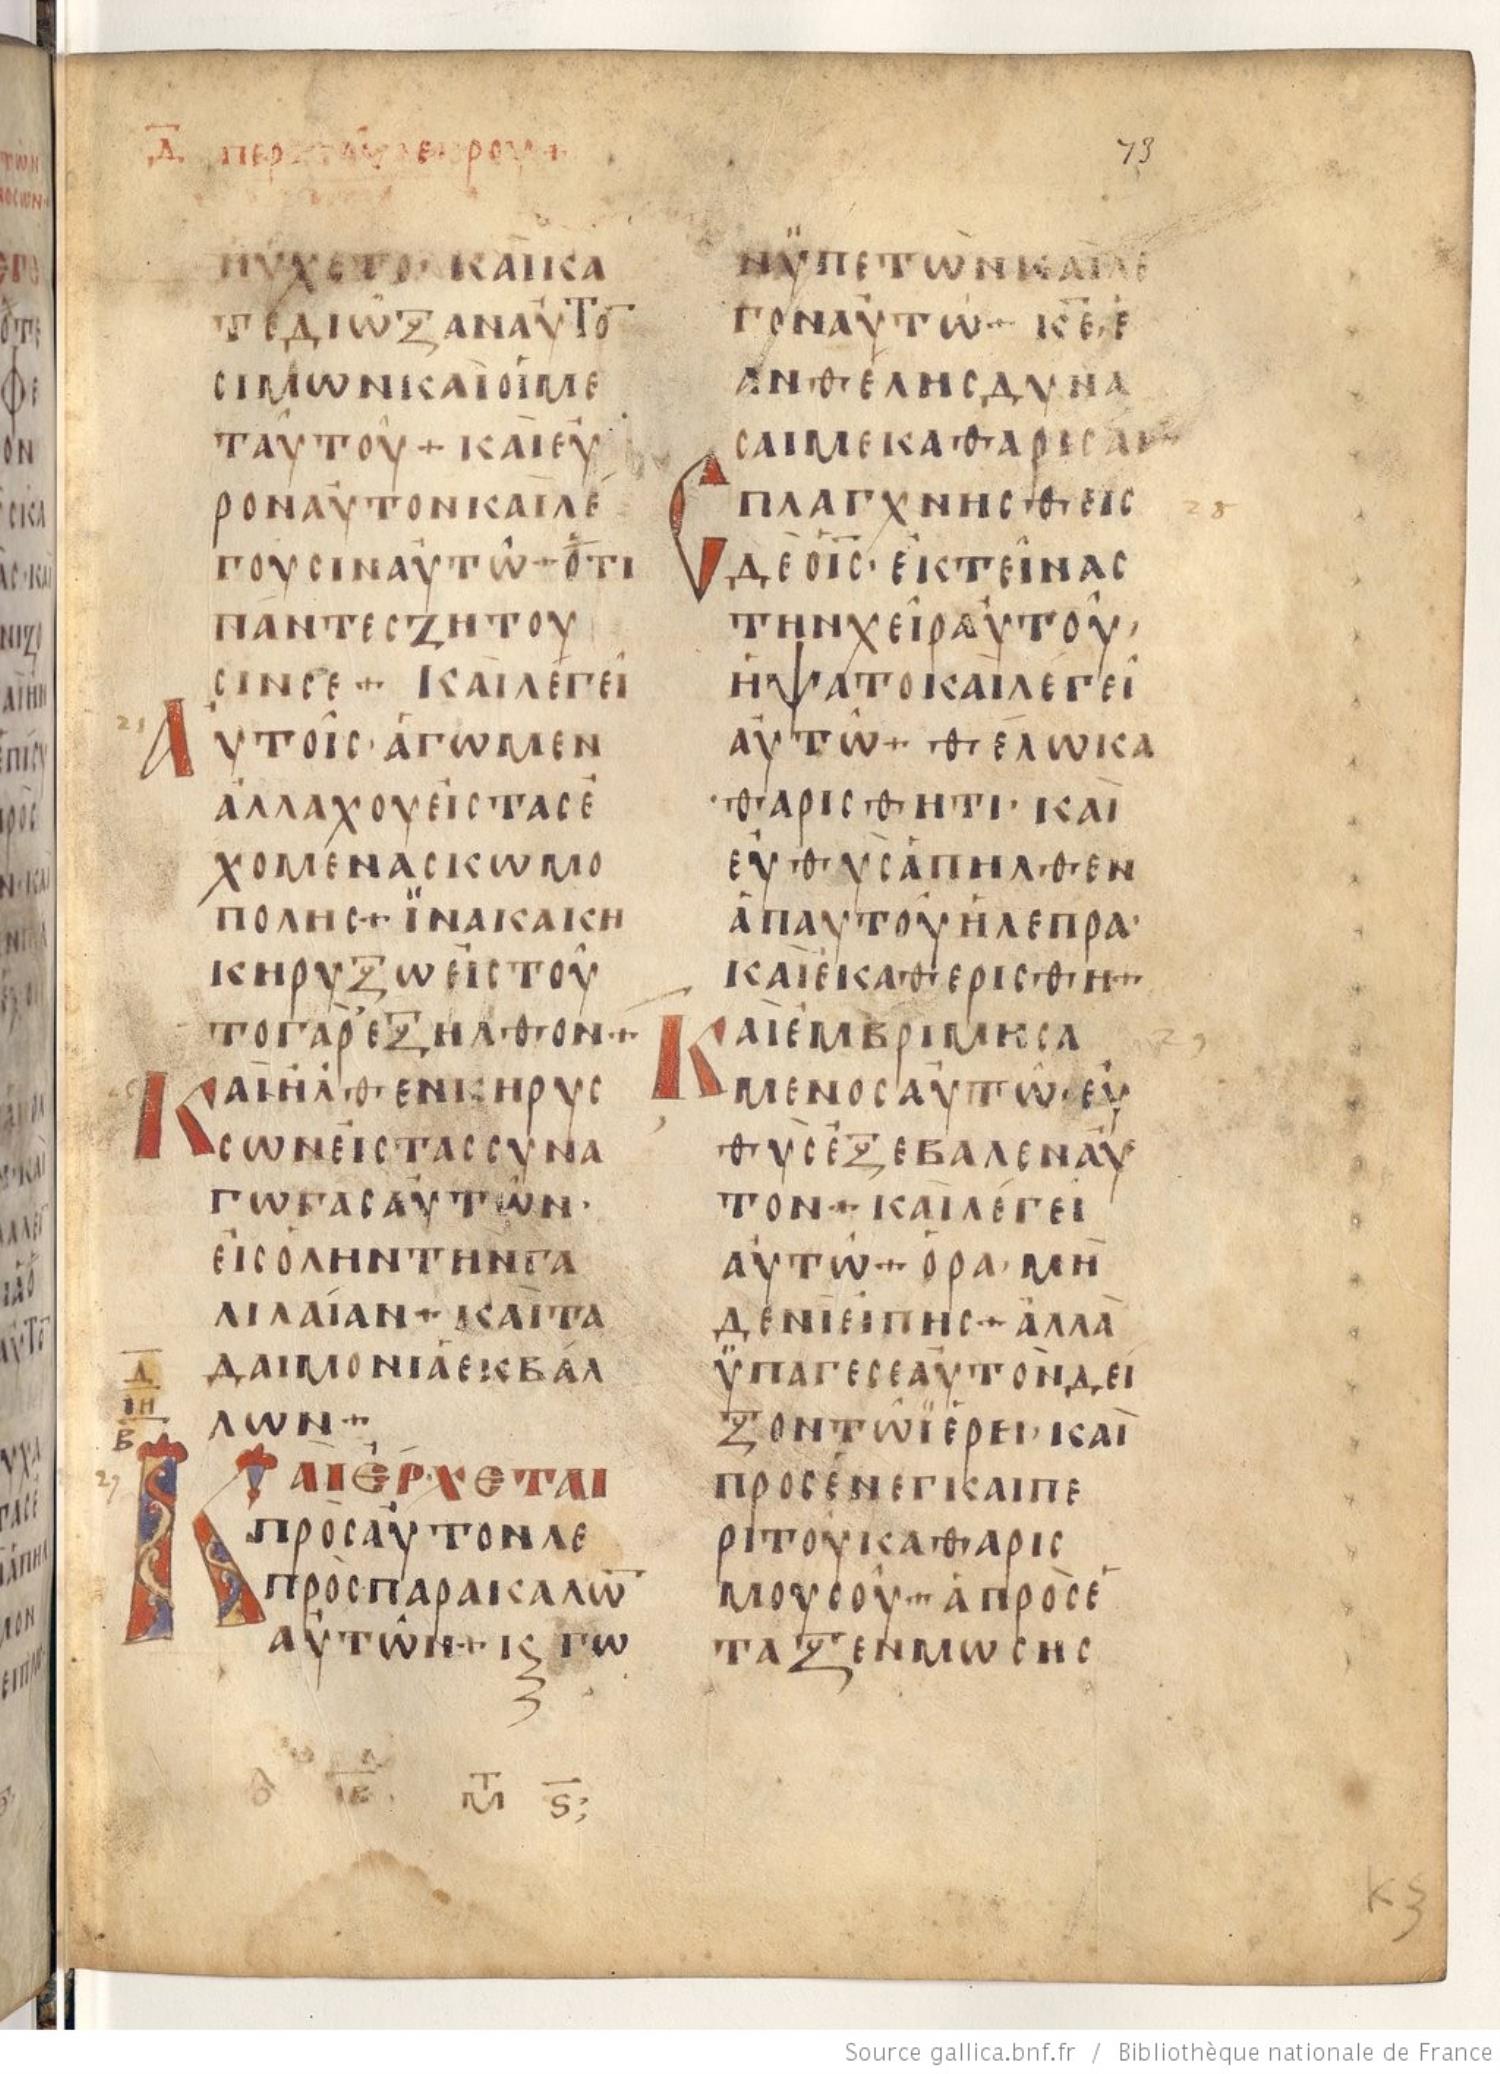 Δ περὶ τοῦ λεπροῦ +
73
ΗΥΧΕΤΟ· ΚΑΙΚΑ
ΤΕΔΙΩΞΑΝΑΥΤΟ̅
ΣΙΜΩΝΚΑΙΟΙΜΕ
ΤΑΥΤΟΥ + ΚΑΙΕΥ
ΡΟΝΑΥΤΟΝΚΑΙΛΕ
ΓΟΥΣΙΝΑΥΤΩ + ΟΤΙ
ΠΑΝΤΕΣΖΗΤΟΥ
ΣΙΝΣΕ + ΚΑΙΛΕΓΕΙ
ΑΥΤΟΙΣ· ΑΓΩΜΕΝ
ΑΛΛΑΧΟΥΕΙΣΤΑΣΕ
ΧΟΜΕΝΑΣΚΩΜΟ
ΠΟΛΗΣ + ΪΝΑΚΑΚΗ
ΚΗΡΥΞΩΕΙΣΤΟΥ
ΤΟΓΑΡΕΞΗΛΘΟΝ +
ΚΑΙΗΛΘΕΝΚΗΡΥΣ
ΣΩΝΕΙΣΤΑΣΣΥΝΑ
ΓΩΓΑΣΑΥΤΩΝ·
ΕΙΣΟΛΗΝΤΗΝΓΑ
ΛΙΛΑΙΑΝ + ΚΑΙΤΑ
ΔΑΙΜΟΝΙΑΕΚΒΑΛ
ΛΩΝ +
Δ
ΙΗ
Β
ΚΑΙΕΡΧΕΤΑΙ
ΠΡΟΣΑΥΤΟΝΛΕ
ΠΡΟΣΠΑΡΑΚΑΛΩ̅
ΑΥΤΩΝ + Κ ΓΩ
ΙΒ
ΜΤ Ϛ;
ΝΫΠΕΤΩΝΚΑΙΛΕ
ΓΟΝΑΥΤΩ + Κ̅Ε̅Ε
ΑΝΘΕΛΗΣΔΥΝΑ
ΣΑΙΜΕΚΑΘΑΡΙΣΑΙ +
ΣΠΛΑΓΧΝΗΣΘΕΙΣ
28
ΔΕΟΙ̅Σ̅· ΕΚΤΕΙΝΑΣ
ΤΗΝΧΕΙΡΑΥΤΟΥ,
ΗΨΑΤΟΚΑΙΛΕΓΕΙ
ΑΥΤΩ + ΘΕΛΩΚΑ
ΘΑΡΙΣΘΗΤΙ· ΚΑΙ
ΕΥΘΥΣΑΠΗΛΘΕΝ
ΑΠΑΥΤΟΥΗΛΕΠΡΑ·
ΚΑΙΕΚΑΘΕΡΙΣΘΗ +
ΚΑΙΕΜΒΡΙΜΗΣΑ
29
ΜΕΝΟΣΑΥΤΩ· ΕΥ
ΘΥΣΕΞΕΒΑΛΕΝΑΥ
ΤΟΝ + ΚΑΙΛΕΓΕΙ
ΑΥΤΩ + ΟΡΑ· ΜΗ
ΔΕΝΙΕΙΠΗΣ + ΑΛΛΑ
ΫΠΑΓΕΣΕΑΥΤΟΝΔΕΙ
ΞΟΝΤΩΪΕΡΕΙ· ΚΑΙ
ΠΡΟΣΕΝΕΓΚΑΙΠΕ
ΡΙΤΟΥΚΑΘΑΡΙΣ
ΜΟΥΣΟΥ + ΑΠΡΟΣΕ
ΤΑΞΕΝΜΩΣΗΣ
Source gallica.bnf.fr / Bibliothèque nationale de France